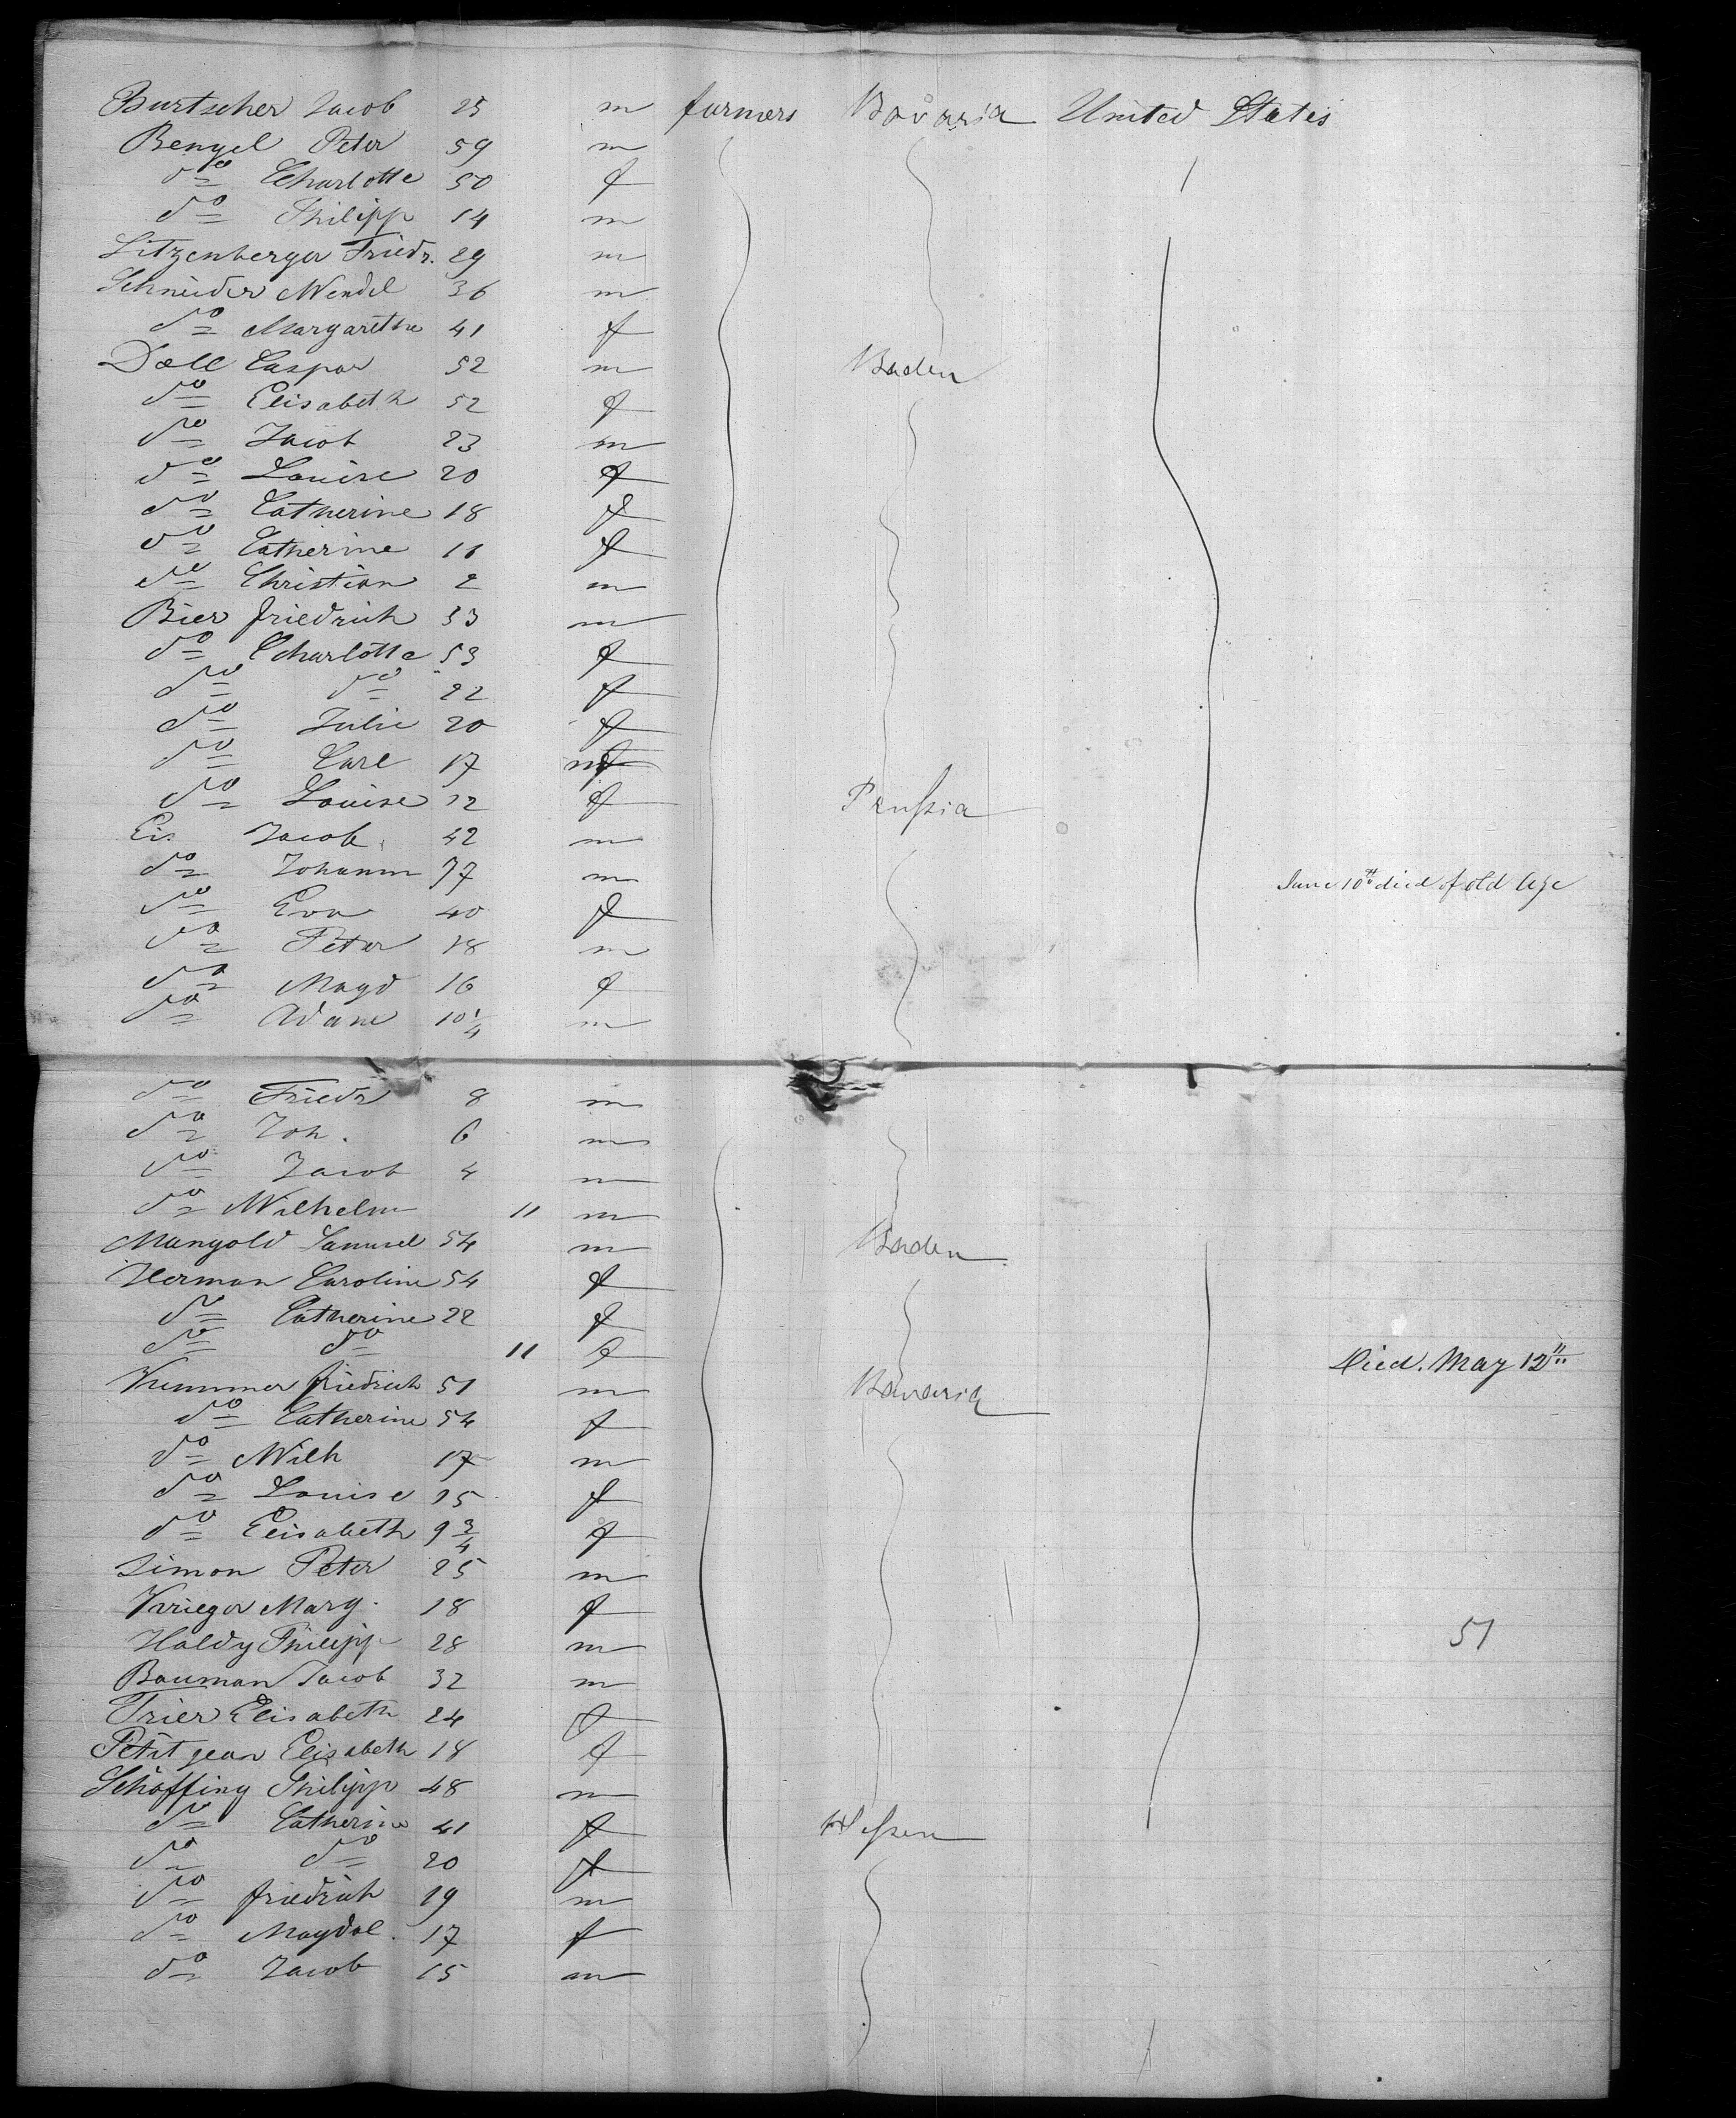 Burtscher Jacob 25 m farmers Bavaria United States
Bengel Peter 59 m
do Charlotte 50 f
do Philipp 14 m
Litzenberger Friedr. 29 m
Schneider Wendel 36 m
do Margarethe 41 f
Doll Caspar 52 m Baden
do Elisabeth 52 f
do Jacob 23 m
do Louise 20 f
do Catherine 18 f
do Catherine 11 f
do Christian 2 m
Bier Friedrich 53 m
do Charlotte 53 f
do do 22 f
do Julie 20 f
do Carl 17 m
do Louise 12 f Prussia
Eis Jacob. 42 m
do Johann 77 m June 10th died of old Age
do Eva 40 f
do Peter 18 m
do Magd 16 f
do Adam 10 1/4 m
do Friedr 8 m
do Joh. 6 m
do Jacob 4 m
do Wilhelm 11 m
Mangold Samuel 54 m Baden
Herman Caroline 54 f
do Catherine 22 f
do do 11 f Died. May 12th
Kummer Friedrich 51 m Bavaria
do Catherine 54 f
do Wilh 17 m
do Louise 15 f
do Elisabeth 9 3/4 f
Simon Peter 25 m
Krieger Marg. 18 f
Haldy Philipp 28 m 51
Bauman Jacob 32 m
Trier Elisabeth 24 f
Petit jean Elisabeth 18 f
Schöffing Philipp 48 m
do Catherine 41 f Hessen
do do 20 f
do Friedrich 19 m
do Magdal. 17 f
do Jacob 15 m